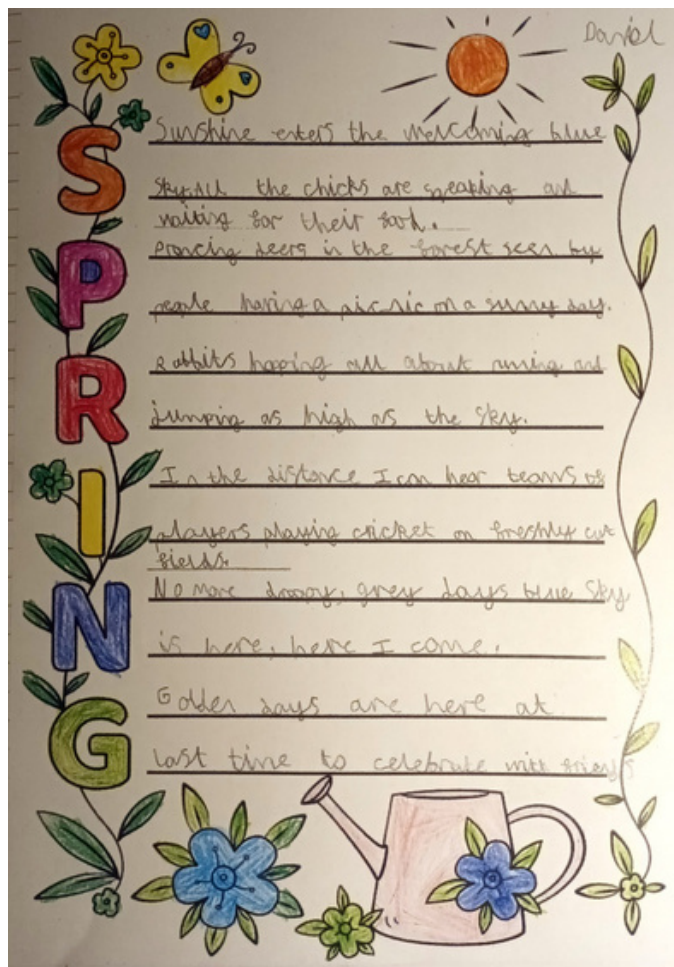 Daniel
SPRING
Sunshine enters the welcoming blue
sky. All the chicks are speaking and
waiting for their food.
Prancing deers in the forest seen by
people having a picnic on a sunny day.
Rabbits hopping all about runing and
jumping as high as the sky.
In the distance I can hear teams of
players playing cricket on freshly cut
fields.
No more droopy, grey days blue sky
is here, here I come.
Golden days are here at
last time to celebrate with friends